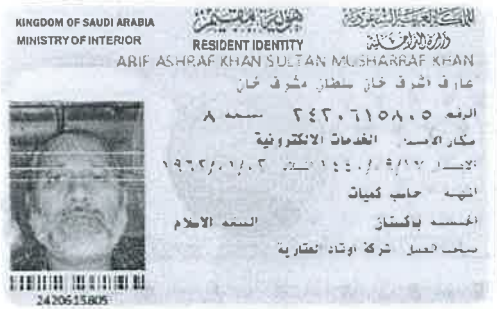 KINGDOM OF SAUDI ARABIA
MINISTRY OF INTERIOR
هوية مقيم
RESIDENT IDENTITY
المملكة العربية السعودية
وزارة الداخلية
ARIF ASHRAF KHAN SULTAN MUSHARRAF KHAN
عارف اشرف خان سلطان مشرف خان
الرقم ٢٤٢٠٦١٥٨٠٥ نسخة ٨
مكان الاصدار الخدمات الالكترونية
١٤٤٠/٠٩/١٧ ١٩٦٢/٠١/٠٢
المهنة حاسب كميات
الجنسية باكستان الديانة الاسلام
صاحب العمل شركة اوتاد العقارية
2420615805